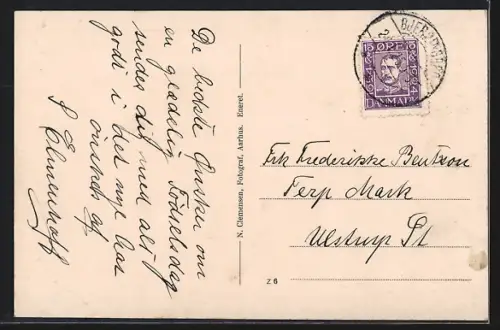 De bedste Ønsker om
en glædelig Fødselsdag
sendes dig med alt
godt i det nye Aar
ønskes af
S Elmenhoff
N. Clemensen, Fotograf, Aarhus. Eneret.
Z 6
15 ØRE 15
1624 1924
DANMARK
BJERRINGBRO
Frk Frederikke Bentzon
Ferp Mark
Ulstrup St